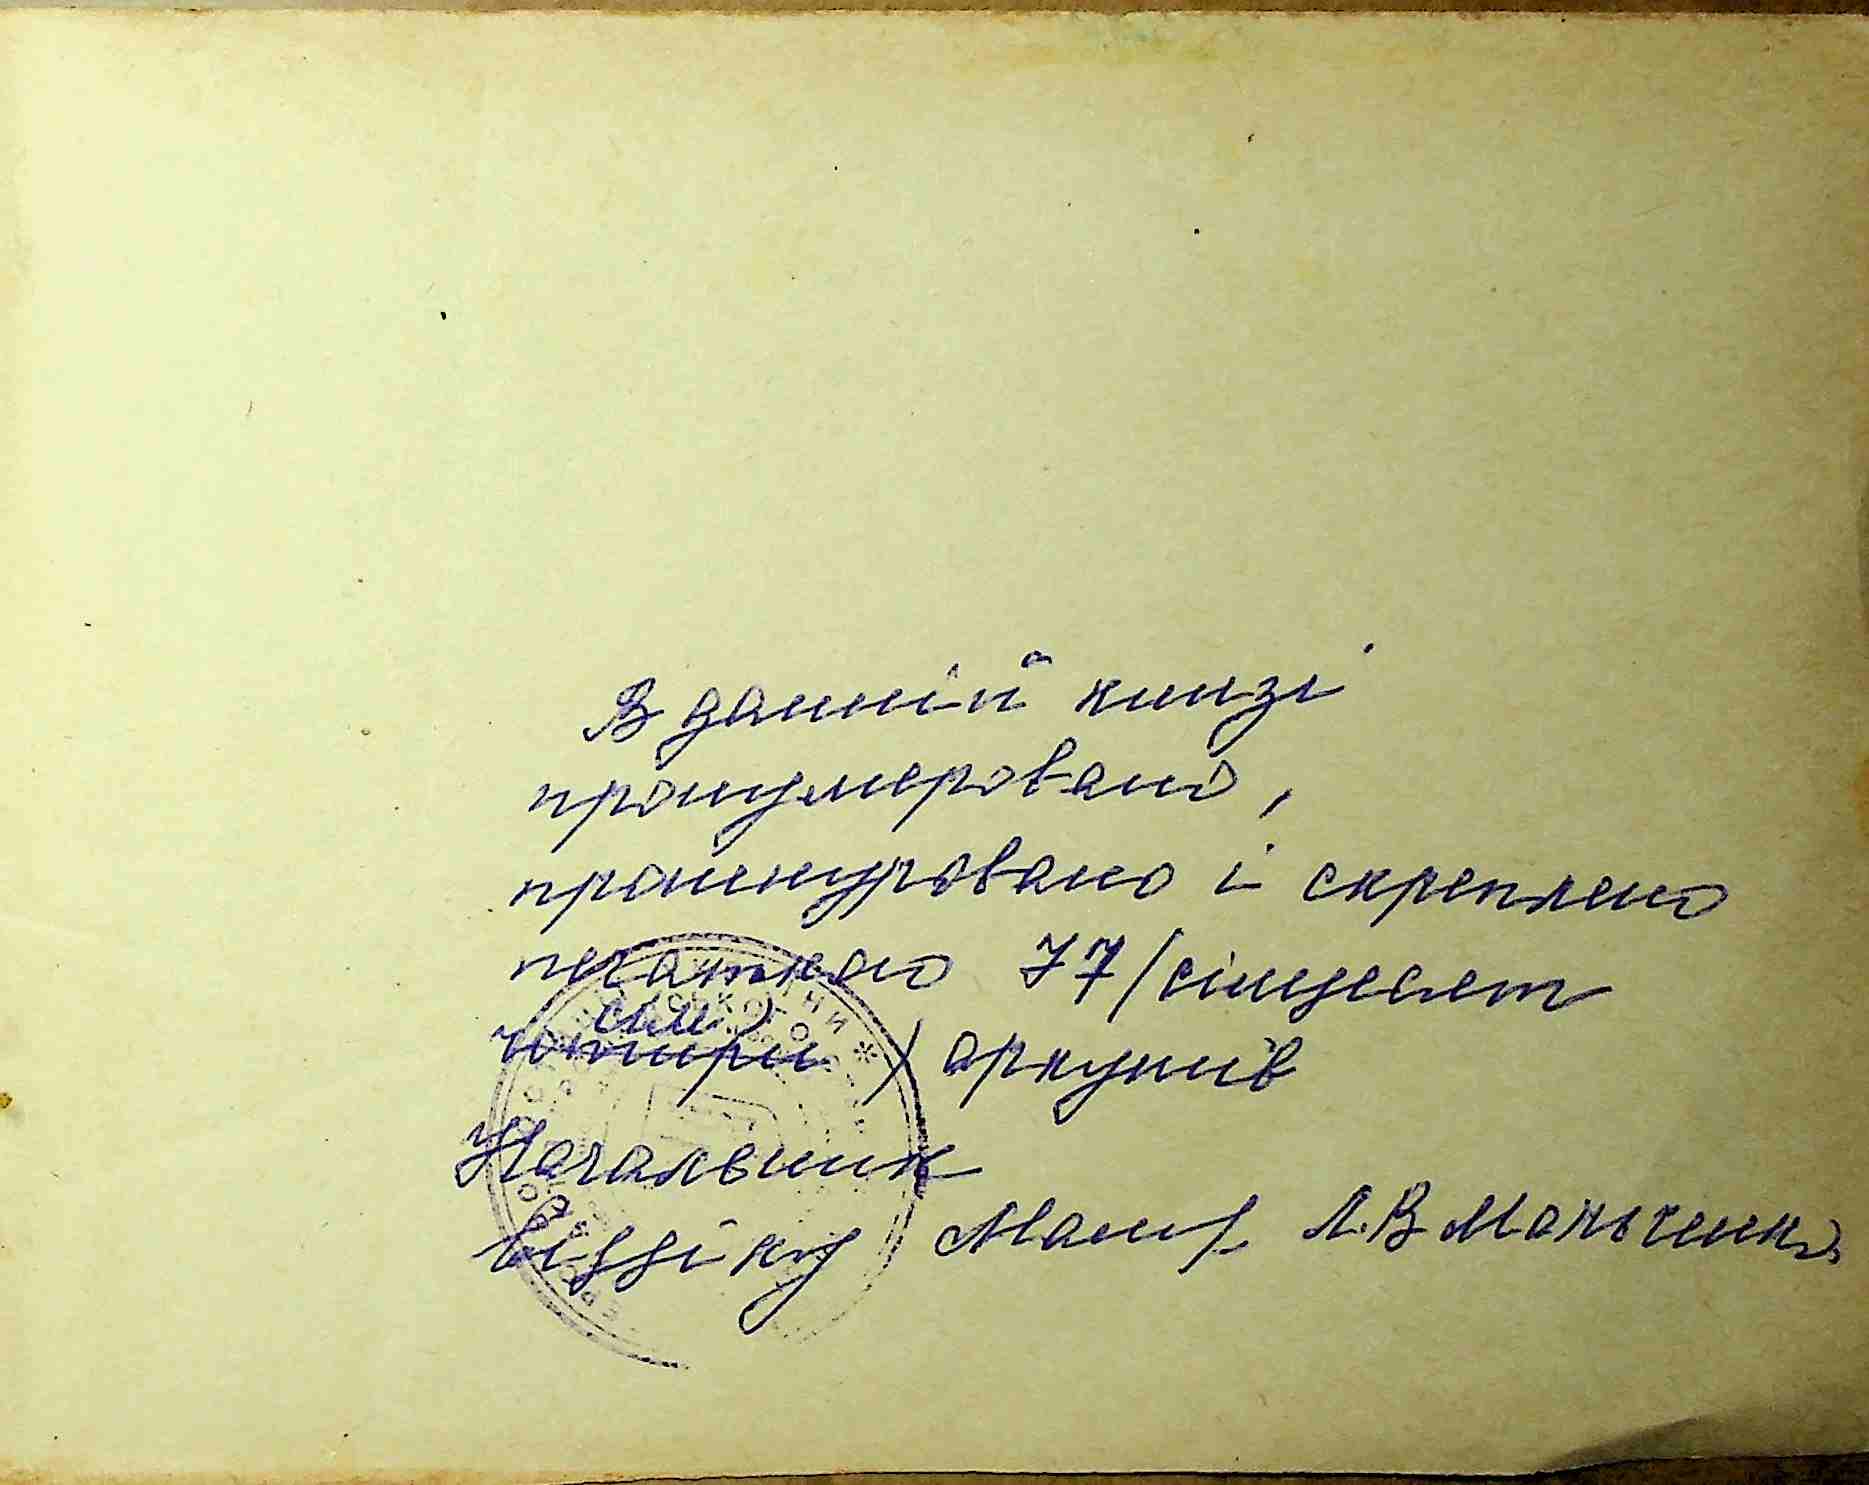 В данній книзі
пронумеровано,
прошнуровано і скреплено
печаткою 77/сімдесят
сім
чотири) аркушів
Начальник
відділу Л.В Манученко